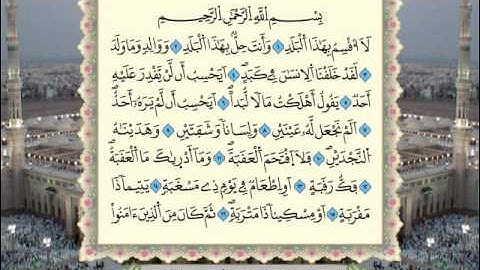 بِسْمِ اللَّهِ الرَّحْمَٰنِ الرَّحِيمِ
لَا أُقْسِمُ بِهَٰذَا الْبَلَدِ ۝١ وَأَنتَ حِلٌّ بِهَٰذَا الْبَلَدِ ۝٢ وَوَالِدٍ وَمَا وَلَدَ
۝٣ لَقَدْ خَلَقْنَا الْإِنسَانَ فِي كَبَدٍ ۝٤ أَيَحْسِبُ أَن لَّن يَقْدِرَ عَلَيْهِ
أَحَدٌ ۝٥ يَقُولُ أَهْلَكْتُ مَالًا لُّبَدًا ۝٦ أَيَحْسِبُ أَن لَّمْ يَرَهُ أَحَدٌ
۝٧ أَلَمْ نَجْعَل لَّهُ عَيْنَيْنِ ۝٨ وَلِسَانًا وَشَفَتَيْنِ ۝٩ وَهَدَيْنَاهُ
النَّجْدَيْنِ ۝١٠ فَلَا اقْتَحَمَ الْعَقَبَةَ ۝١١ وَمَا أَدْرَاكَ مَا الْعَقَبَةُ
۝١٢ فَكُّ رَقَبَةٍ ۝١٣ أَوْ إِطْعَامٌ فِي يَوْمٍ ذِي مَسْغَبَةٍ ۝١٤ يَتِيمًا ذَا
مَقْرَبَةٍ ۝١٥ أَوْ مِسْكِينًا ذَا مَتْرَبَةٍ ۝١٦ ثُمَّ كَانَ مِنَ الَّذِينَ ءَامَنُوا